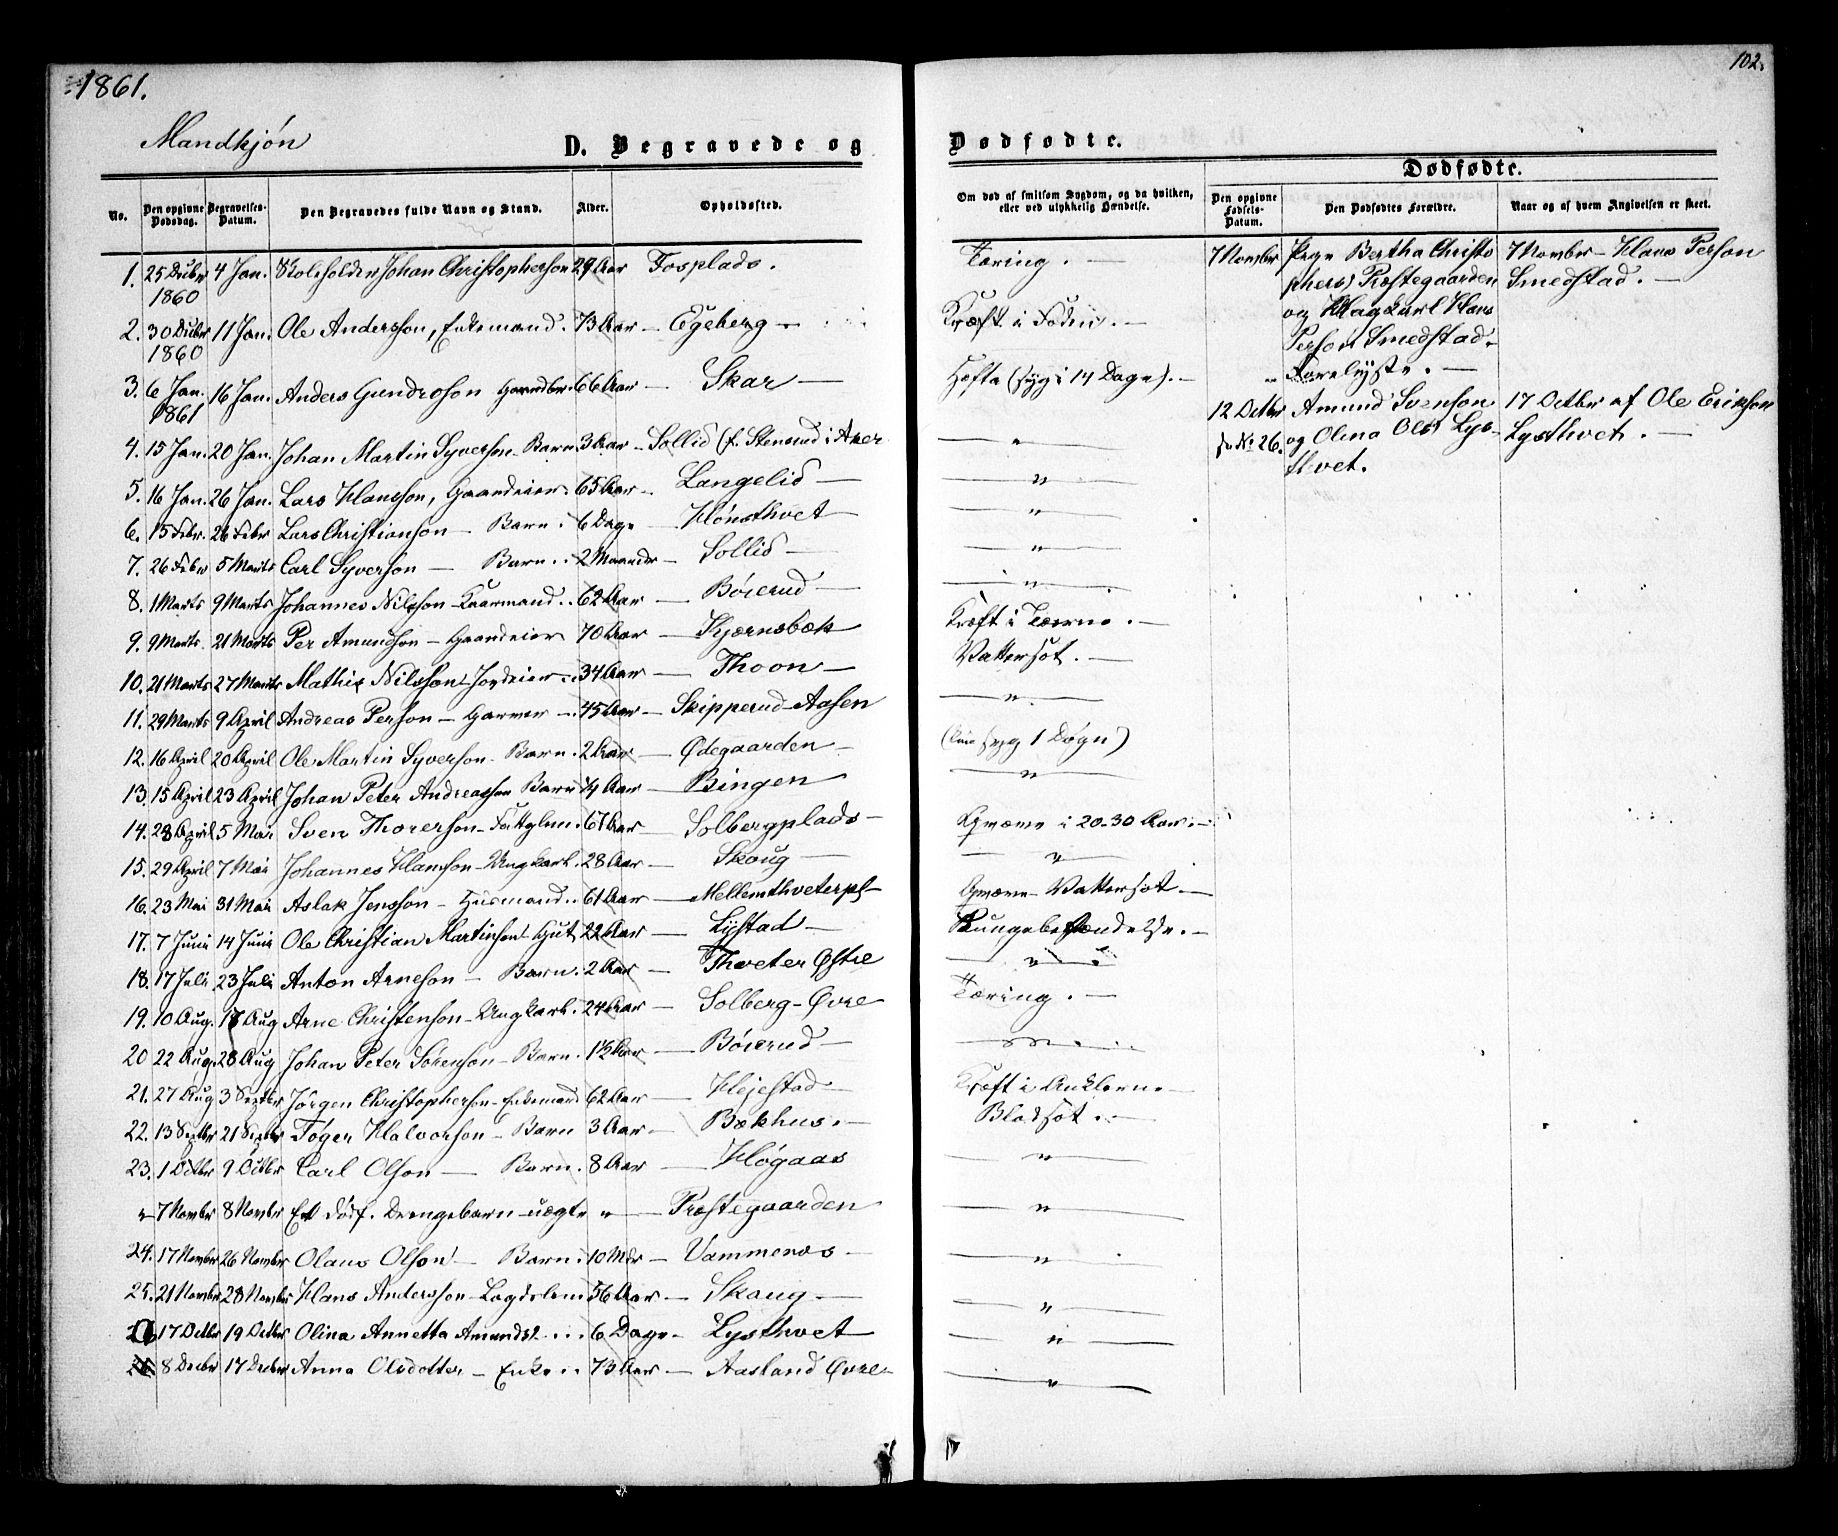 1861.
102.
Mandkjøn
D. Begravede og
Dødfødte.
Dødfødte.
No.
Den opgivne Dødsdag.
Begravelses-Datum.
Den Begravedes fulde Navn og Stand.
Alder.
Opholdssted.
Om død af smitsom Sygdom, og da hvilken, eller ved ulykkelig Hændelse.
Den opgivne Fødsels-Datum.
Den Dødfødtes Forældre.
Naar og af hvem Angivelsen er skeet.
1. 25 Decbr 1860 4 Jan. Johan Christopherson 29 Aar Fosplads. Tæring. —
2. 30 Decbr 1860 11 Jan. Ole Andersson, Enkemand. 73 Aar — Egeberg — Kræft i Foden. —
3. 6 Jan. 1861 16 Jan. Anders Gundroson Gaardbr. 66 Aar — Skar — Hæfta (syg i 14 Dage). —
4. 15 Jan. 20 Jan. Johan Martin Syverson Barn 3 Aar — Sollid (f. Stensrud i Aker — " —
5. 16 Jan. 26 Jan. Lars Hansson, Gaardeier. 65 Aar — Langelid — — " —
6. 15 Febr. 26 Febr Lars Christianson — Barn. 6 Dage — Hønsthvet — " —
7. 26 Febr 5 Marts Carl Syverson — Barn. 2 Maaneder — Sollid — — " —
8. 1 Marts 9 Marts Johannes Nilsson — Kaarmand. 62 Aar — Böierud — — " —
9. 9 Marts. 21 Marts Per Amundson — Gaardeier 70 Aar — Kjærnsbæk Kræft i —
10. 21 Marts 27 Marts Mathis Nilsson Jordeier. 34 Aar — Thoon — Vattersot. —
11. 29 Marts 9 April Andreas Person — Garver — 45 Aar — Skipperud-Aasen — " —
12. 16 April 20 April Ole Martin Syverson — Barn. 2 Aar — Ødegaarden — syg 1 Døgn)
13. 15 April 23 April Johan Peter Andreasson Barn 14 Aar — Bingen — " —
14. 28 April 5 Mai Sven Thorerson — 67 Aar — Solbergplads — i 20-30 Aar. —
15. 29 April 7 Mai Johannes Hansson — Ungkarl. 28 Aar — Skoug — — " —
16. 23 Mai 31 Mai Aslak Jensson — Husmand. 61 Aar — Mellemthveterpl — Vattersot —
17. 7 Juni 14 Juni Ole Christian Martinson Gut 22 Aar — Lystad — Lungebetændelse. —
18. 17 Juli 23 Juli Anton Arneson — Barn. 2 Aar — Thveter Østre — " —
19. 10 Aug. 17 Aug Arne Christenson — Ungkarl. 24 Aar — Solberg — Øvre Tæring. —
20 22 Aug. 28 Aug Johan Peter Sörenson — Barn. 1½ Aar — Böierud — — " —
21. 27 Aug 3 Septbr Jörgen Christopherson — Enkemand 62 Aar — Hejestad — Kræft i —
22. 13 Septbr 21 Septbr Tøger Halvorson — Barn 3 Aar — Bækhus. — Blodsot. —
23. 1 Octbr 9 Octbr Carl Olson — Barn. 8 Aar — Høgaas — " —
" 7 Novmbr 8 Novmbr Et dødf. Drengebarn — uægte " — Præstegaarden — " —
24. 17 Novmber 26 Novmber Olaus Olson — Barn. 10 Mdr — Vammenæs — — " —
25. 21 Novmbr 28 Novmbr Hans Andersson — Lægdslem 56 Aar — Skoug — — " —
17 Octbr 19 Octbr Olina Annetta Amundsd. . . . 6 Dage — Lysthvet — " —
8 Decbr 17 Decbr Anna Olsdotter — Enke 73 Aar — Aasland Øvre — " —
7 Novmbr Pige Bertha Christophersd Præstegaarden og Ungkarl Hans Person Smedstad.
7 Novmbr — Hans Person Smedstad. —
12 Octbr
f. No 26.
Amund Svenson og Olina Olsd Lysthvet.
17 Octbr af Ole Erikson Lysthvet. —